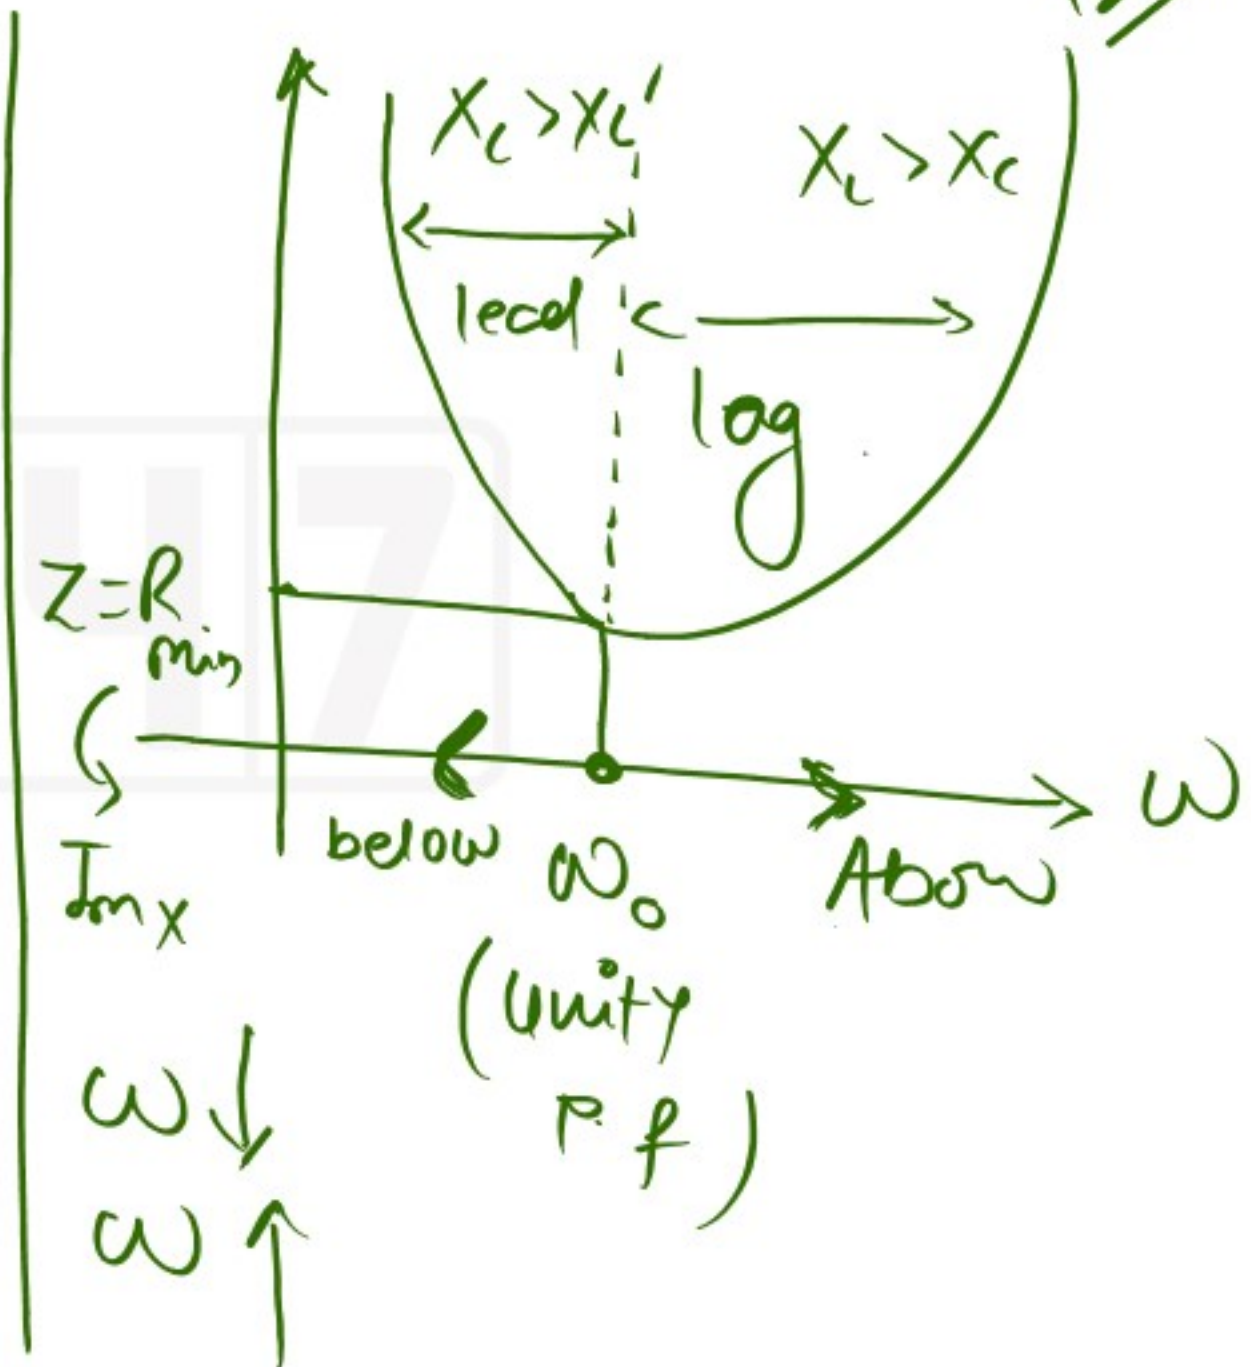 X_c > X_L
X_L > X_c
lead
lag
Z = R
min
I_mx
below
ω₀
Above
ω
(unity
P.f)
ω ↓
ω ↑
47